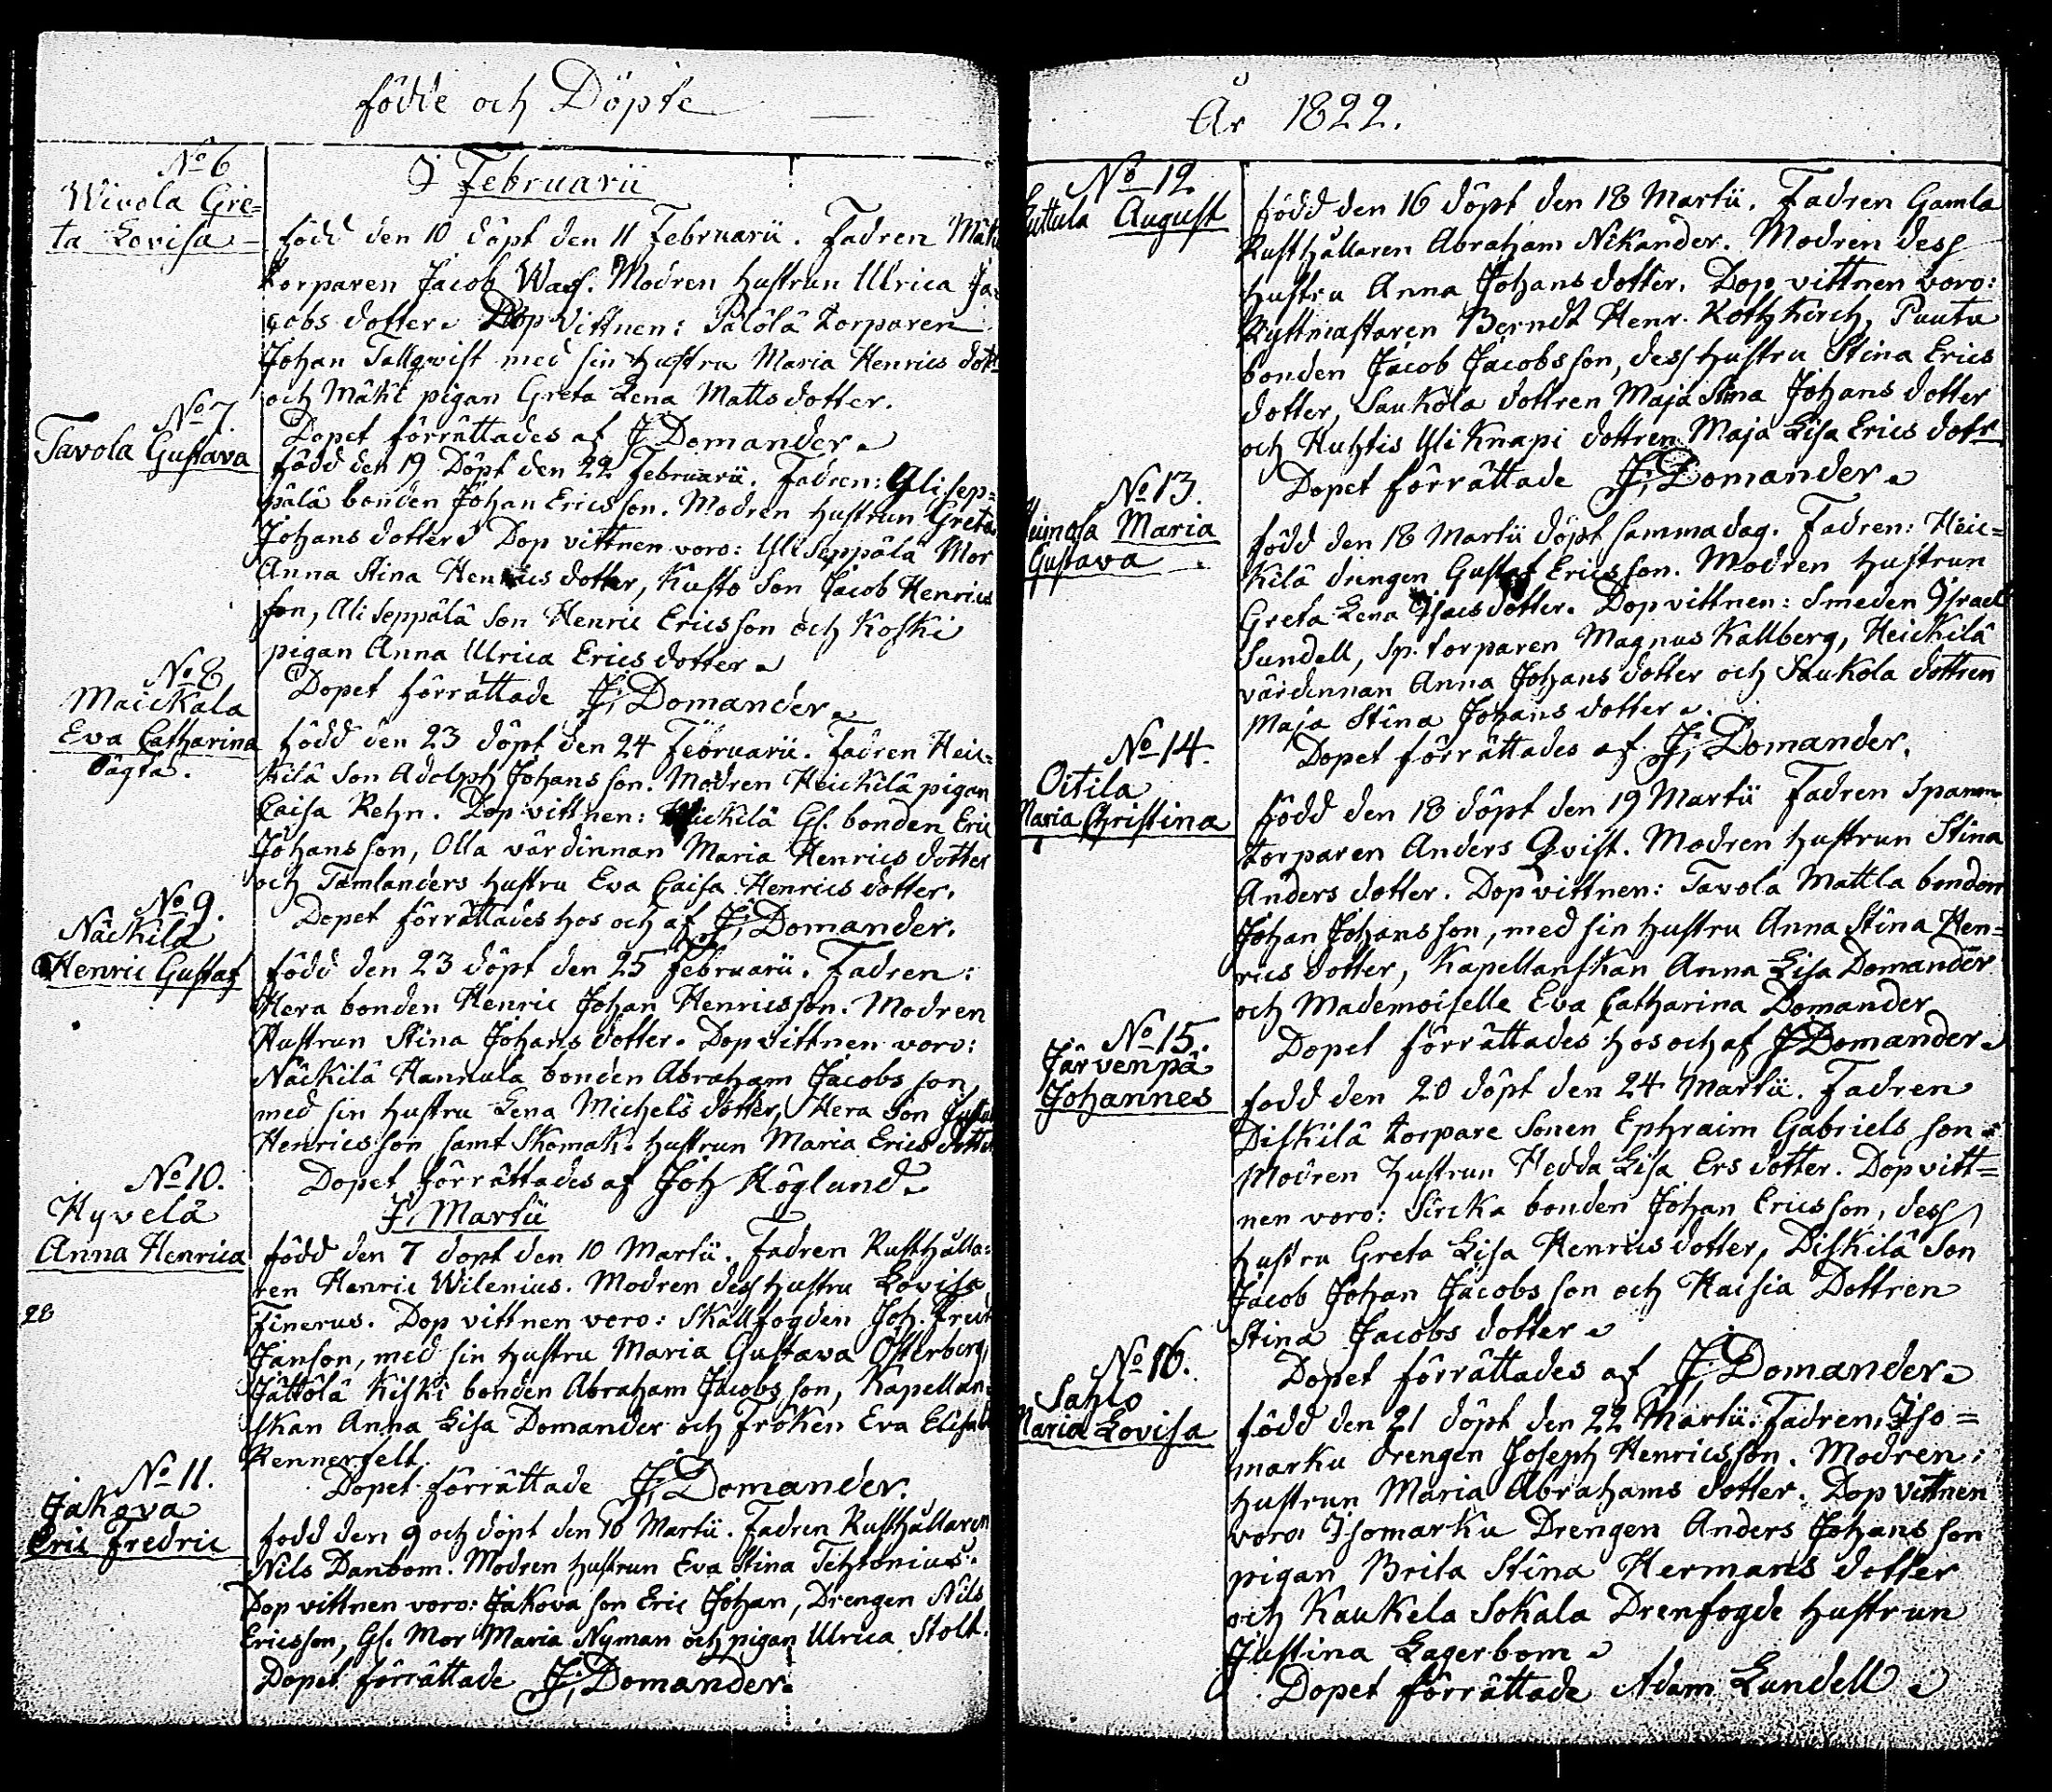 födde och Döpte
No 6
Wivola Gre=
ta Lovisa
I Februarii
född den 10 döpt den 11 Februarii. Fadren
torparen Jacob Wass. Modren hustrun Ulrica Ja=
cobs dotter. Dop vittnen: Sälölä torparen
Johan Tallqvist med sin hustru Maria Henrics dotr
och Mäki pigan Greta Lena Matts dotter.
Dopet förrättades af J. Domander.
No 7.
Tavola Gustava
född den 19 Döpt den 22 Februarii. Fadren: Alisep=
pälä bonden Johan Ericsson. Modren hustrun Greta
Johans dotter. Dop vittnen voro: Yliseppälä Mor
Anna Stina Henrics dotter, Kusto Son Jacob Henrics
son, Aliseppälä Son Henric Ericsson och Koski
pigan Anna Ulrica Erics dotter.
Dopet förrättade J. Domander.
No 8
Maickala
Eva Catharina
oägta.
född den 23 döpt den 24 Februarii. Fadren Heic=
kilä Son Adolph Johansson. Modren Heickilä pigan
Caisa Rehn. Dop vittnen: Heickilä Gl. bonden Eric
Johansson, Olla värdinnan Maria Henrics dotter
och Tamlanders hustru Eva Caisa Henrics dotter.
Dopet förrättades hos och af J. Domander.
No 9.
Näckilä
Henric Gustaf
född den 23 döpt den 25 Februarii. Fadren:
Hera bonden Henric Johan Henricsson. Modren
Hustrun Stina Johans dotter. Dop vittnen voro:
Näckilä Hannula bonden Abraham Jacobs son,
med sin hustru Lena Michels dotter, Hera Son
Henricsson samt Skomak. hustrun Maria Erics dotter
Dopet förrättades af Joh Höglund.
No 10.
Hyvelä
Anna Henrica
I Martii
född den 7 dopt den 10 Martii. Fadren Rusthålla=
ren Henric Wilenius. Modren dess hustru Lovisa
Finerus. Dop vittnen voro: Skallfogden Joh. Fredr
Janson, med sin hustru Maria Gustava Österberg,
Jättölä Kiski bonden Abraham Jacobsson, Kapellan=
skan Anna Lisa Domander och Fröken Eva Elisab
Rennerfelt.
Dopet förrättade J. Domander.
28
No 11.
Jakova
Eric Fredric
född den 9 och döpt den 10 Martii. Fadren Rusthållaren
Nils Danbom. Modren hustrun Eva Stina Tehtonius.
Dop vittnen voro: Jakova son Eric Johan, Drengen Nils
Ericsson, Gl. Mor Maria Nyman och pigan Ulrica Stolt.
Dopet förrättade J. Domander.
År 1822.
No 12.
Luttula August
född den 16 döpt den 18 Martii. Fadren Gamla
Rusthållaren Abraham Nikander. Modren dess
hustru Anna Johans dotter. Dop vittnen voro:
Ryttmastaren Berndt Henr. Kothkirch, Puutu
bonden Jacob Jacobsson, dess hustru Stina Erics
dotter, Saukola dottren Maja Stina Johans dotter
och Huhtis Yli Knapi dottren Maja Lisa Erics dotr
Dopet förrättade J. Domander.
No 13.
Maria
Gustava
född den 18 Martii döpt samma dag. Fadren: Heic=
kilä drengen Gustaf Ericsson. Modren hustrun
Greta Lena Isacs dotter. Dop vittnen: Smeden Israel
Sundell, Sp. torparen Magnus Kallberg, Heickilä
värdinnan Anna Johans dotter och Saukola dottren
Maja Stina Johans dotter.
Dopet förrättades af J. Domander.
No 14.
Oitila
Maria Christina
född den 18 döpt den 19 Martii Fadren Spanm
torparen Anders Qvist. Modren hustrun Stina
Anders dotter. Dop vittnen: Tavola Mattla bonden
Johan Johansson, med sin hustru Anna Stina Hen=
rics dotter, Kapellanskan Anna Lisa Domander
och Mademoiselle Eva Catharina Domander
Dopet förrättades hos och af J Domander.
No 15.
Järvenpä
Johannes
född den 20 döpt den 24 Martii. Fadren
Diskilä torpare Sonen Ephraim Gabriels son.
Modren hustrun Hedda Lisa Ers dotter. Dop vitt=
nen voro: Sircka bonden Johan Ericsson, dess
hustru Greta Lisa Henrics dotter, Diskilä Son
Jacob Johan Jacobs son och Haisia Dottren
Stina Jacobs dotter.
Dopet förrättades af J. Domander.
No 16.
Sahlo
Maria Lovisa
född den 21 döpt den 22 Martii. Fadren: Iso=
marku drengen Joseph Henricsson. Modren:
hustrun Maria Abrahams dotter. Dop vittnen
voro: Isomarku Drengen Anders Johans son
pigan Brita Stina Hermans dotter
och Kaukela Sokala Drenfogde hustrun
Justina Lagerbom.
Dopet förrättade Adam Lundell.